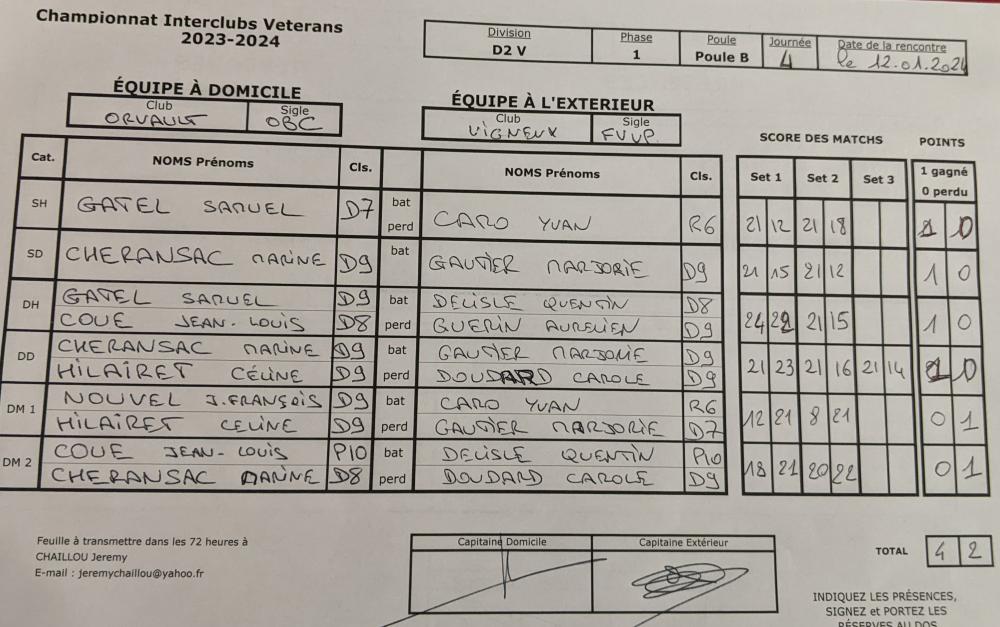 Championnat Interclubs Veterans
2023-2024
Division Phase Poule Journée Date de la rencontre
D2 V 1 Poule B 4 le 12.01.2024
ÉQUIPE À DOMICILE ÉQUIPE À L'EXTERIEUR
Club Sigle Club Sigle
ORVAULT OBC VIGNEUX FVVP.
SCORE DES MATCHS POINTS
Cat. NOMS Prénoms Cls. NOMS Prénoms Cls. Set 1 Set 2 Set 3 1 gagné
0 perdu
SH GATEL SAMUEL D7 bat
perd CARO YVAN R6 21 12 21 18 1 0
SD CHERANSAC MARINE D9 bat GAUTIER MARJORIE D9 21 15 21 12 1 0
DH GATEL SAMUEL D9 bat DELISLE QUENTIN D8
COUE JEAN-LOUIS D8 perd GUERIN AURELIEN D9 24 22 21 15 1 0
DD CHERANSAC MARINE D9 bat GAUTIER MARJORIE D9
HILAIRET CÉLINE D9 perd DOUDARD CAROLE D9 21 23 21 16 21 14 1 0
DM 1 NOUVEL J.FRANÇOIS D9 bat CARO YVAN R6
HILAIRET CELINE D9 perd GAUTIER MARJORIE D7 12 21 8 21 0 1
DM 2 COUE JEAN-LOUIS P10 bat DELISLE QUENTIN P10
CHERANSAC MARINE D8 perd DOUDARD CAROLE D9 18 21 20 22 0 1
Feuille à transmettre dans les 72 heures à
CHAILLOU Jeremy
E-mail : jeremychaillou@yahoo.fr
Capitaine Domicile Capitaine Extérieur
TOTAL 4 2
INDIQUEZ LES PRÉSENCES,
SIGNEZ et PORTEZ LES
RÉSERVES AU DOS